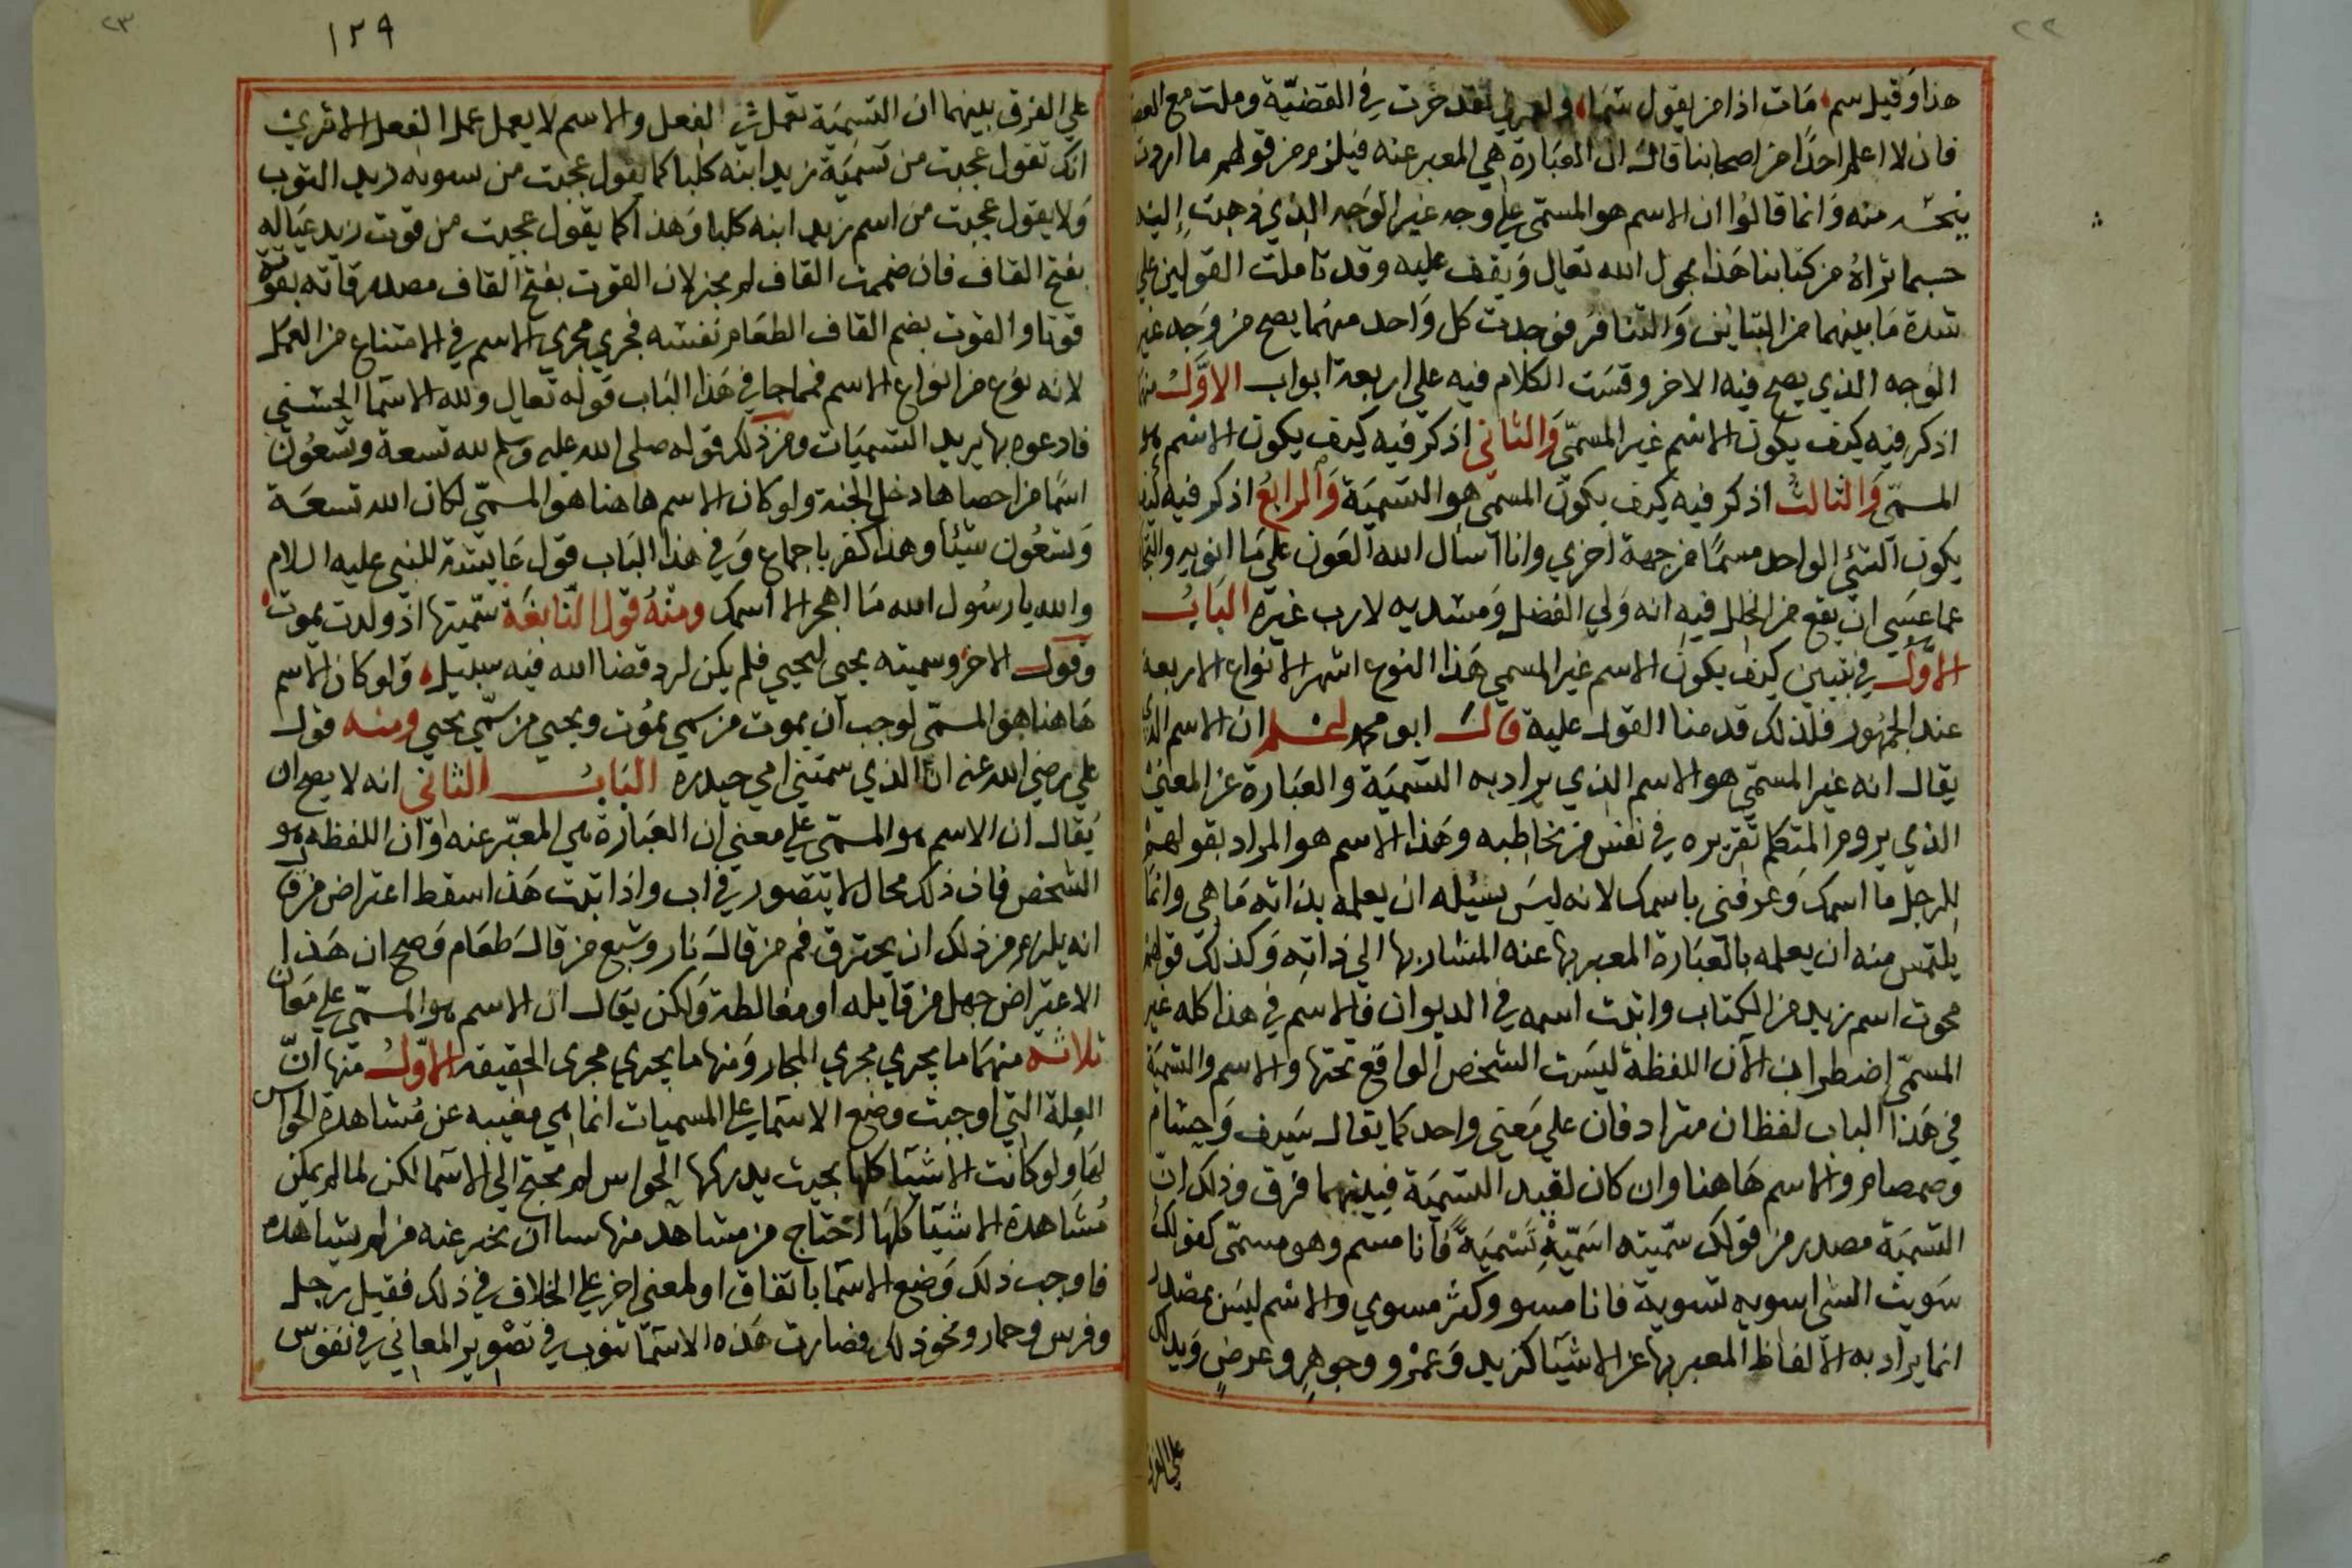 ٢٢
هذا وقيل سم مات اذا من يقول سما ولعمري لقد جرت في القضيّة وملت مع
فان لا اعلم احدًا من اصحابنا قال ان العبارة هي المعبر عنه فيلزم من قولهم ما اردت
منه وانما قالوا ان الاسم هو المسمّى على وجه غير الوجه الذي ذهبت إليه
حسبما تراهُ من كتابنا هَذا بحول الله تعالى وَيقف عليه وقد تأملت القولين على
شدة مَا بينهما من التباين وَالتنافر فوجدت كل وَاحد منهما يصح من وَجه غير
الوَجه الذي يصح فيه الاخر وقسَمت الكلام فيه على اربعة ابواب الاوَّلُ منها
اذكر فيه كيف يكون الاسم غير المسمّى وَالثاني اذكر فيه كيف يكون الاسم هو
المسمّى وَالثالثُ اذكر فيه كيف يكون المسمّى هو التسميَة وَالرابعُ اذكر فيه كيف
يكون الشئ الواحد مسمًا من جهة اخري وانا اسأل الله العَون على مَا انويه
عما عسَى ان يقع من الخلل فيه انه وَلي الفضل وَمسديه لا رب غيره البَابُ
الاوَّلُ في تبين كيف يكون الاسم غير المسمي هَذا النوع اشهر الانواع الاربعة
عند الجمهُور فلذلك قدمنا القول عليه قالَ ابو محمد اعلم ان الاسم الذي
يقال انه غير المسمّي هو الاسم الذي يراد به التسميَة والعبَارة عن المعنَى
الذي يروم المتكلم تقريره في نفس من يخاطبه وهَذا الاسم هو المراد بقولهم
للرجل ما اسمك وَعرفني باسمك لانه ليسَ يسئله ان يعلمه بذاته مَا هي وانما
يلتمس منه ان يعلمه بالعبَارة المعبر بها عنه المشار بها الي ذاته وَكذلك قولهم
محوت اسم زيد من الكتاب واثبت اسمه في الديوان فالاسم في هذا كله غير
المسمّى اضطرابا لان اللفظة ليسَت الشخص الواقع تحتها والاسم والتسميَة
في هَذا الباب لفظان مترادفان على مَعنى واحد كما يقال سَيف وَحسَام
وصمصام والاسم هَاهنا وان كان لقبد التسميَة فبينهما فرق وذلك انّ
التسميَة مصدر من قولك سمّيته اسَمّيهِ تَسْميَةً فأنا مسم وهو مسمّى كقولك
سَويت الشي اسويه تسوية فانا مسو وكثر مسوي والاسم ليسَ بمصدر
انما يراد به الالفاظ المعبر بها عن الاشيَا كزيد وَعمرو وجوهرٍ وعرضٍ وَيدلك
على الفرق
٢٣
١٢٩
على الفرق بينهما ان التسميَة تعمل الفعل والاسم لا يعمل عمل الفعل الا ترى
انك تقول عجبت من تسميَة زيد ابنه كلبا كما يقول عجبت من سويه زيد الثوب
وَلا يقول عجبت من اسم زيد ابنه كلبا وَهذا كما يقول عجبت من قوت زيد عيَاله
بفتح القاف فان ضممت القاف لم يجز لان القوت بفتح القاف مصدر قاته يقوته
قوتا والقوت بضم القاف الطعَام نفسه فجري مجري الاسم في الامتناع من العمَل
لانه نوع من انواع الاسم فمما جا في هَذا البَاب قوله تعالى ولله الاسَما الحسنى
فادعوه بها يريد التسميَات ومن ذلك قوله صلى الله عليه وسلم لله تسعة وتسعُون
اسمَا من احصاها دخل الجنة ولو كان الاسم هاهنا هو المسمّى لكان الله تسعَة
وَتسعُون شيئا وهذا كفر باجماع وَفي هذا البَاب قول عَايشة للنبي عليه السلام
والله يا رسُول الله مَا اهجر الا اسمك ومنهُ قول النّابغَة سمّيتها اذ ولدت تموت
وقول الاخر وسميته يحيى ليحيي فلم يكن لرد قضا الله فيه سبيل ولو كان الاسم
هَاهنا هوَ المسمّى لوجب ان يموت من سمي يموت ويحيي من سمّي يحيي ومنه قول
على رضي الله عنه انا الذي سمتني امي حيدره البَابُ الثاني انه لا يصح ان
يُقال ان الاسم هو المسمّى على معنى ان العبَارة هي المعبّر عنه وَان اللفظه هو
الشخص فان ذلك محال لا يتصور في اب واذا ثبت هَذا سقط اعتراض من قال
انه يلزم من ذلك ان يحترق فم من قالَ نار وشبع من قالَ طعَام وَصح ان هَذا
الاعتراض جهل من قايله او مغالطة وَلكن يقال ان الاسم هو المسمّى على مَعان
ثلاثه منهَا ما يجري مجري المجاز وَمنها ما يجري مجرى الحقيقه الاوّلُ منها انّ
العلة التي اوجبت وضع الاسَما على المسميات انما هي مغيبه عن مُشاهدة الحواس
لهَا ولو كانت الاشيَا كلها بحيث يدركها الحواس لم تحتج الى الاسَما لكن لما لم يمكن
مُشاهدة الاشيَا كلهَا احتاج من مشاهد منها سا ان يخبر عنه من لم يشاهده
فاوجب ذلك وَضع الاسَما باتفاق او لمعنى اخر على الخلاف في ذلك فقيل رجل
وفرس وحمار ونحو ذلك فصارت هَذه الاسَما تنوب في تصْوير المعاني في نفوس